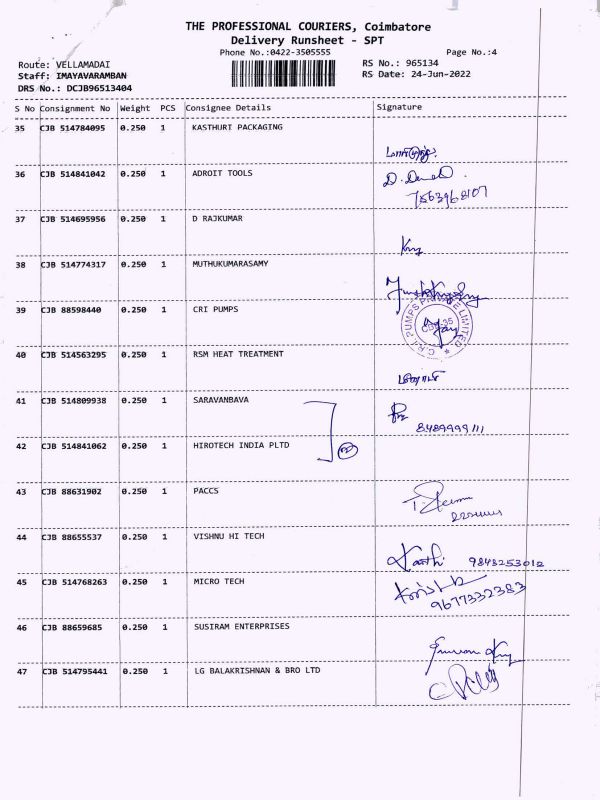 THE PROFESSIONAL COURIERS, Coimbatore
Delivery Runsheet - SPT
Phone No.:0422-3505555 Page No.:4
Route: VELLAMADAI RS No.: 965134
Staff: IMAYAVARAMBAN RS Date: 24-Jun-2022
DRS No.: DCJB96513404
S No Consignment No Weight PCS Consignee Details Signature
35 CJB 514784095 0.250 1 KASTHURI PACKAGING
36 CJB 514841042 0.250 1 ADROIT TOOLS
37 CJB 514695956 0.250 1 D RAJKUMAR
38 CJB 514774317 0.250 1 MUTHUKUMARASAMY
39 CJB 88598440 0.250 1 CRI PUMPS
C.R.I. PUMPS PRIVATE LIMITED
40 CJB 514563295 0.250 1 RSM HEAT TREATMENT
41 CJB 514809938 0.250 1 SARAVANBAVA
8489999111
42 CJB 514841062 0.250 1 HIROTECH INDIA PLTD
43 CJB 88631902 0.250 1 PACCS
44 CJB 88655537 0.250 1 VISHNU HI TECH
9843253012
45 CJB 514768263 0.250 1 MICRO TECH
9677332383
46 CJB 88659685 0.250 1 SUSIRAM ENTERPRISES
47 CJB 514795441 0.250 1 LG BALAKRISHNAN & BRO LTD